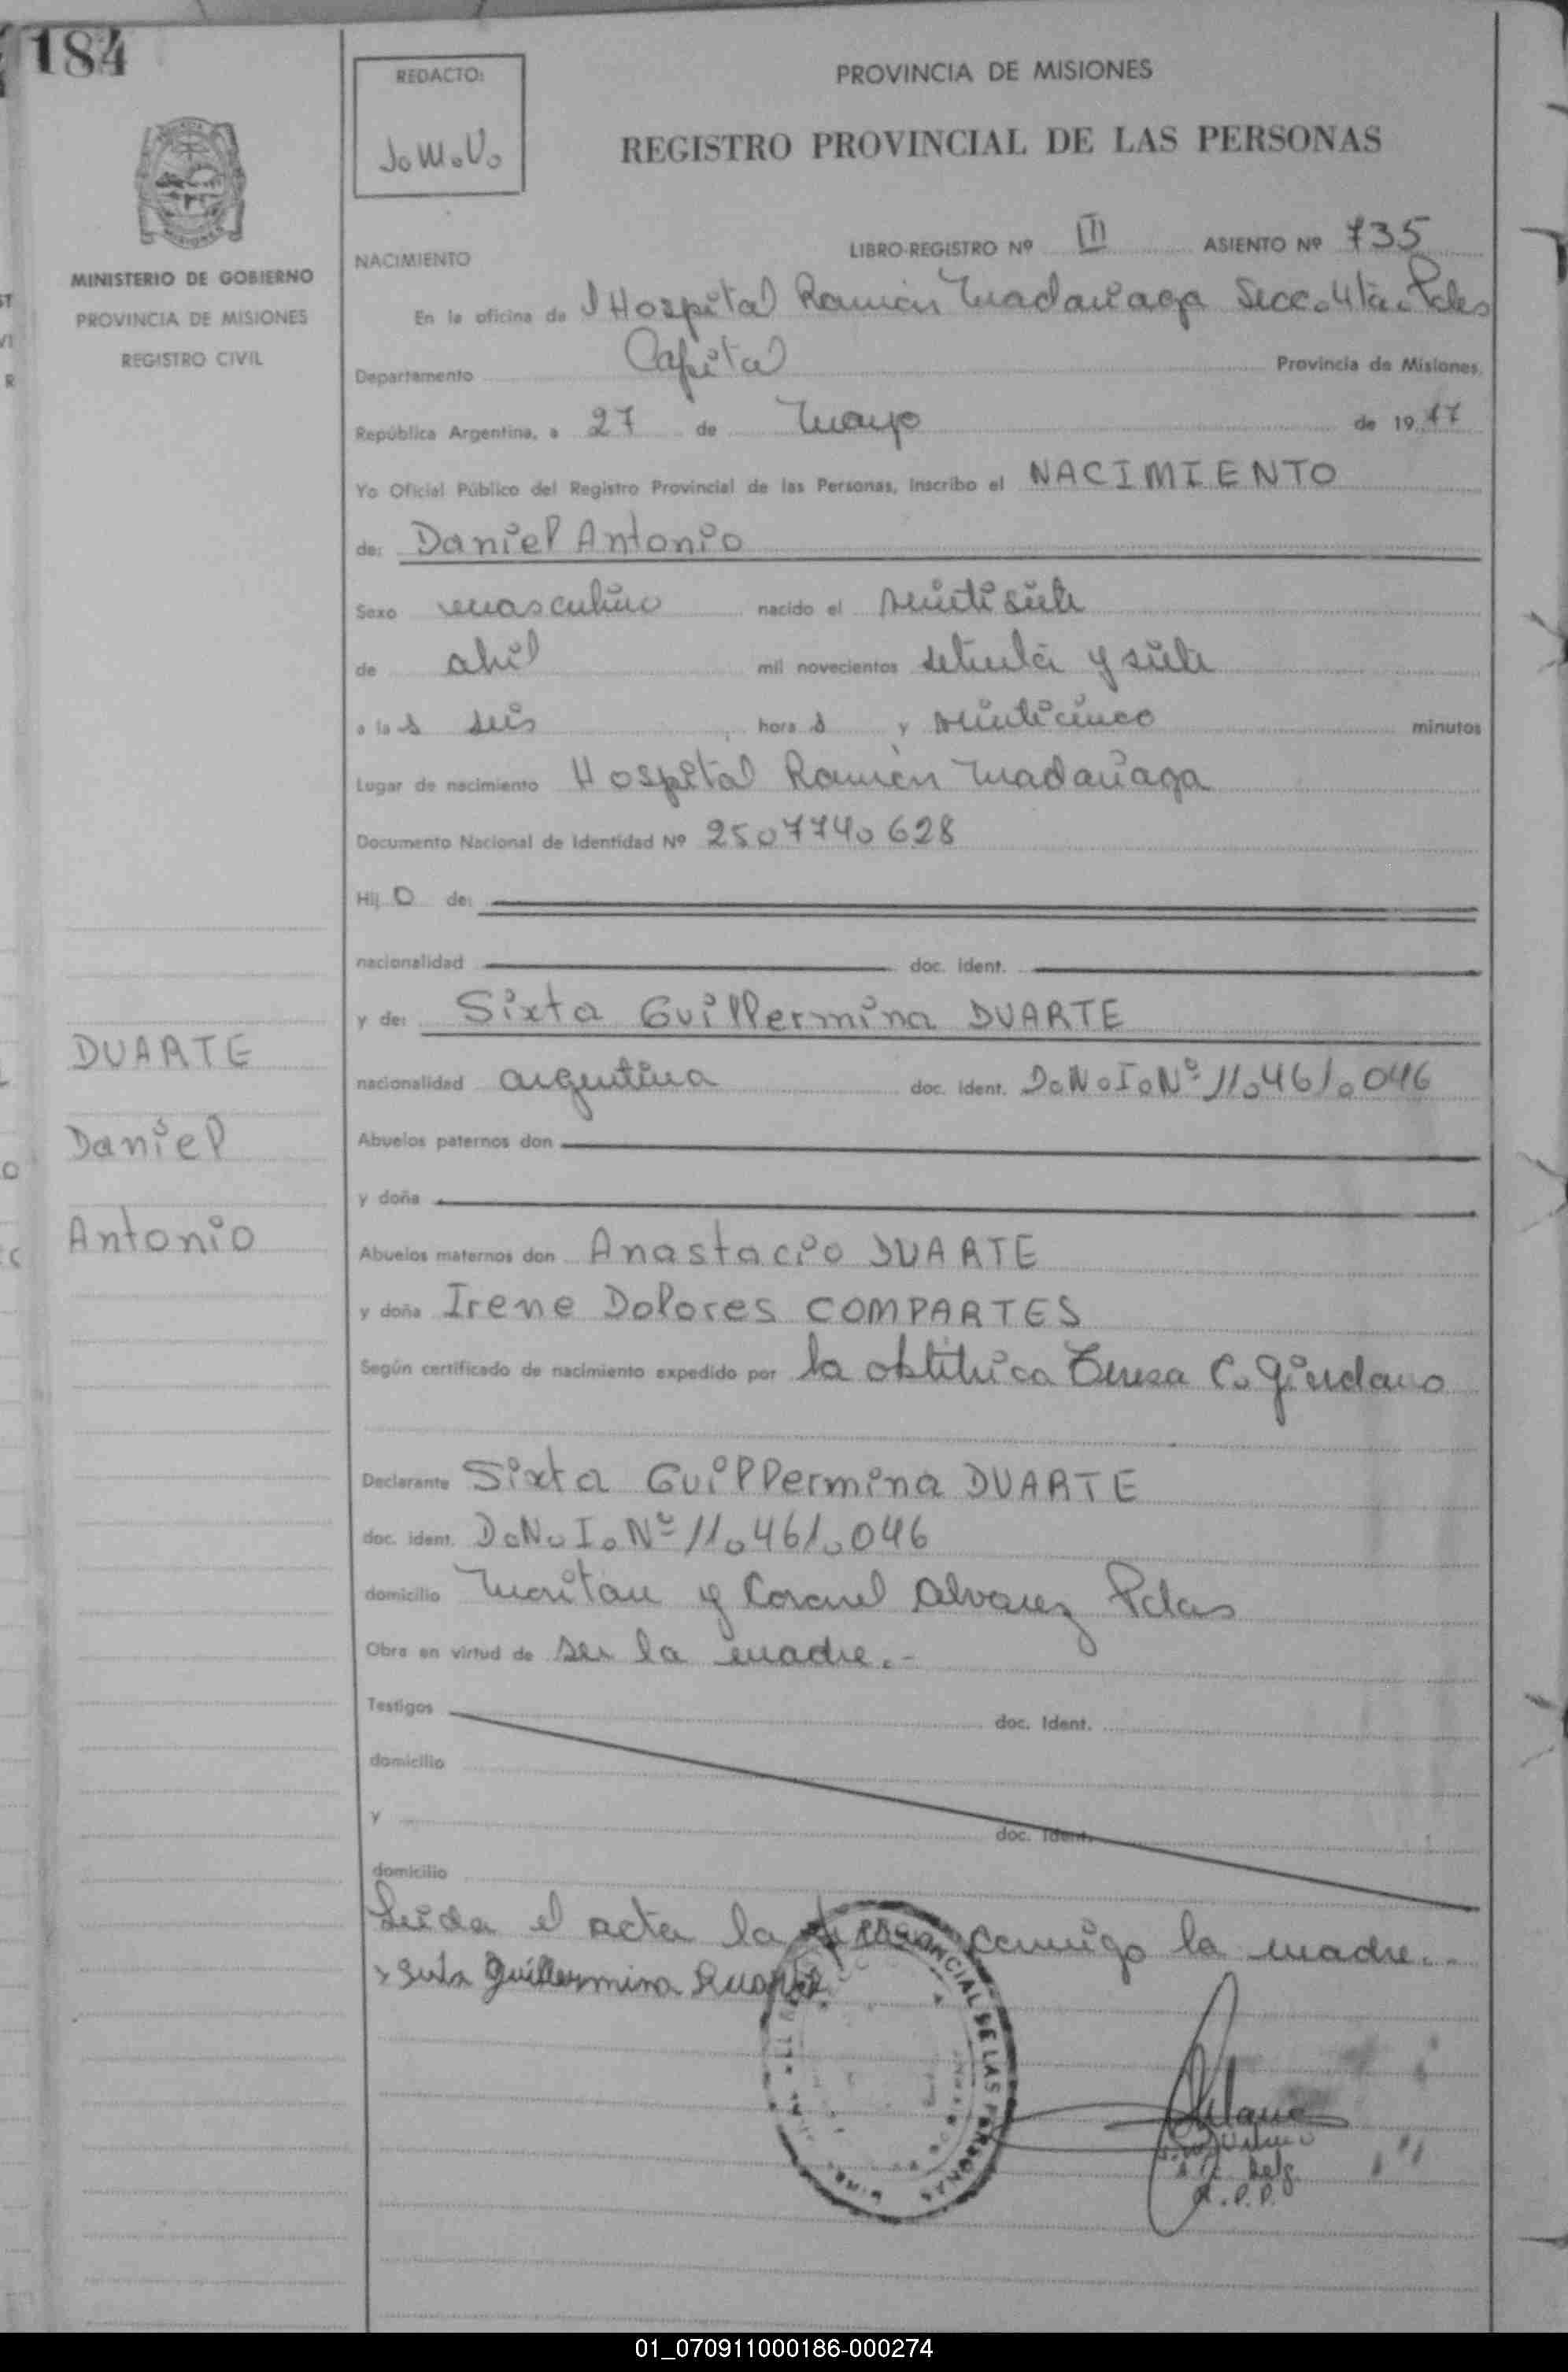 184
REDACTO:
J.M.V.
PROVINCIA DE MISIONES
REGISTRO PROVINCIAL DE LAS PERSONAS
MINISTERIO DE GOBIERNO
PROVINCIA DE MISIONES
REGISTRO CIVIL
NACIMIENTO
LIBRO-REGISTRO Nº III ASIENTO Nº 735
En la oficina de l Hospital Ramón Madariaga Secc. 4ta. Pdas
Departamento Capital Provincia de Misiones,
República Argentina, a 27 de Mayo de 19 77
Yo Oficial Público del Registro Provincial de las Personas, Inscribo el NACIMIENTO
de: Daniel Antonio
Sexo masculino nacido el veintisiete
de abril mil novecientos setenta y siete
a la s seis hora s y veinticinco minutos
Lugar de nacimiento Hospital Ramón Madariaga
Documento Nacional de Identidad Nº 25.077.40628
Hij o de:
nacionalidad doc. ident.
y de: Sixta Guillermina DUARTE
nacionalidad argentina doc. ident. D.N.I.Nº 11.461.046
Abuelos paternos don
y doña
Abuelos maternos don Anastacio DUARTE
y doña Irene Dolores COMPARTES
Según certificado de nacimiento expedido por la obstétrica Teresa C. Giordano
Declarante Sixta Guillermina DUARTE
doc. ident. D.N.I.Nº 11.461.046
domicilio y Coronel Alvarez Pdas
Obra en virtud de ser la madre.-
Testigos doc. Ident.
domicilio
y doc. Ident.
domicilio
Leida el acta la conmigo la madre.-
Sixta Guillermina Duarte
DUARTE
Daniel
Antonio
PROVINCIAL DE LAS PERSONAS
01_070911000186-000274